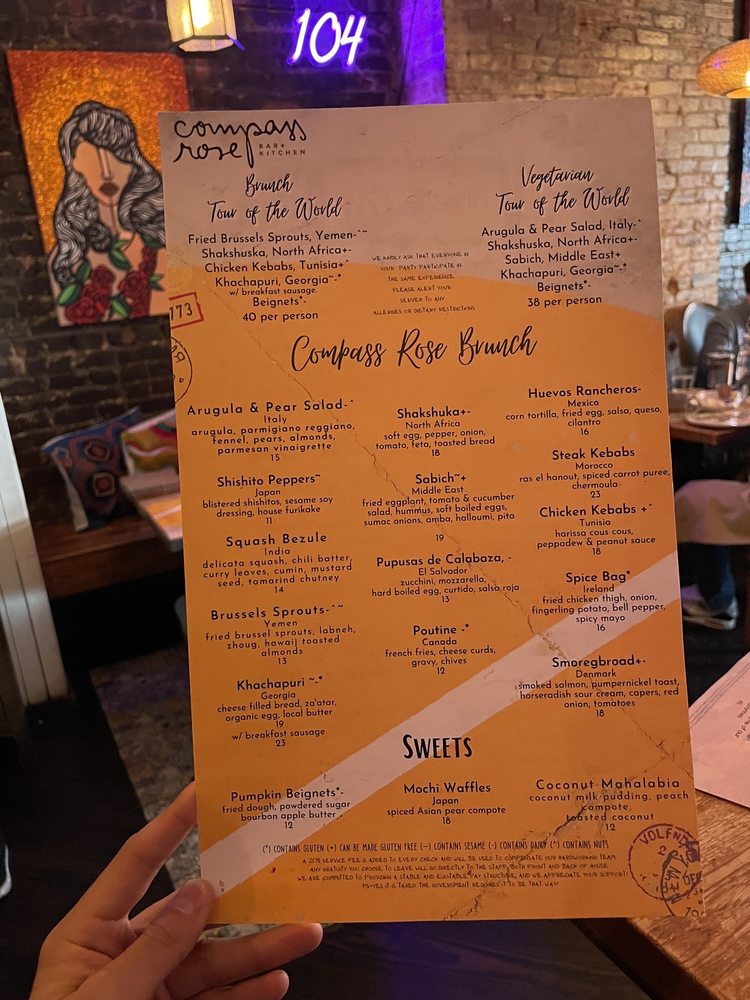 104
compass
rose BAR+
KITCHEN
Brunch
Tour of the World
Fried Brussels Sprouts, Yemen-^~
Shakshuska, North Africa+-
Chicken Kebabs, Tunisia+^
Khachapuri, Georgia~-*
w/ breakfast sausage.
Beignets*-
40 per person
WE KINDLY ASK THAT EVERYONE IN
YOUR PARTY PARTICIPATE IN
THE SAME EXPERIENCE.
PLEASE ALERT YOUR
SERVER TO ANY
ALLERGIES OR DIETARY RESTRICTIONS
Vegetarian
Tour of the World
Arugula & Pear Salad, Italy-^
Shakshuska, North Africa+-
Sabich, Middle East+
Khachapuri, Georgia~-*
Beignets*-
38 per person
773
Compass Rose Brunch
Arugula & Pear Salad-^
Italy
arugula, parmigiano reggiano,
fennel, pears, almonds,
parmesan vinaigrette
15
Shishito Peppers~
Japan
blistered shishitos, sesame soy
dressing, house furikake
11
Squash Bezule
India
delicata squash, chili batter,
curry leaves, cumin, mustard
seed, tamarind chutney
14
Brussels Sprouts-^~
Yemen
fried brussel sprouts, labneh,
zhoug, hawaij toasted
almonds
13
Khachapuri ~-*
Georgia
cheese filled bread, za'atar,
organic egg, local butter
19
w/ breakfast sausage
23
Shakshuka+-
North Africa
soft egg, pepper, onion,
tomato, feta, toasted bread
18
Sabich~+
Middle East
fried eggplant, tomato & cucumber
salad, hummus, soft boiled eggs,
sumac onions, amba, halloumi, pita
19
Pupusas de Calabaza, -
El Salvador
zucchini, mozzarella,
hard boiled egg, curtido, salsa roja
13
Poutine -*
Canada
french fries, cheese curds,
gravy, chives
12
Huevos Rancheros-
Mexico
corn tortilla, fried egg, salsa, queso,
cilantro
16
Steak Kebabs
Morocco
ras el hanout, spiced carrot puree,
chermoula
23
Chicken Kebabs +^
Tunisia
harissa cous cous,
peppadew & peanut sauce
18
Spice Bag*
Ireland
fried chicken thigh, onion,
fingerling potato, bell pepper,
spicy mayo
16
Smoregbroad+-
Denmark
smoked salmon, pumpernickel toast,
horseradish sour cream, capers, red
onion, tomatoes
18
SWEETS
Pumpkin Beignets*-
fried dough, powdered sugar
bourbon apple butter
12
Mochi Waffles
Japan
spiced Asian pear compote
18
Coconut Mahalabia
coconut milk pudding, peach
compote,
toasted coconut
12
(*) CONTAINS GLUTEN (+) CAN BE MADE GLUTEN FREE (~) CONTAINS SESAME (-) CONTAINS DAIRY (^) CONTAINS NUTS
A 20% SERVICE FEE IS ADDED TO EVERY CHECK AND WILL BE USED TO COMPENSATE OUR HARDWORKING TEAM.
ANY GRATUITY YOU CHOOSE TO LEAVE WILL GO DIRECTLY TO THE STAFF, BOTH FRONT AND BACK OF HOUSE.
WE ARE COMMITTED TO PROVIDING A STABLE AND EQUITABLE PAY STRUCTURE, AND WE APPRECIATE YOUR SUPPORT!
PS-YES IT IS TAXED THE GOVERNMENT REQUIRES IT TO BE THAT WAY!